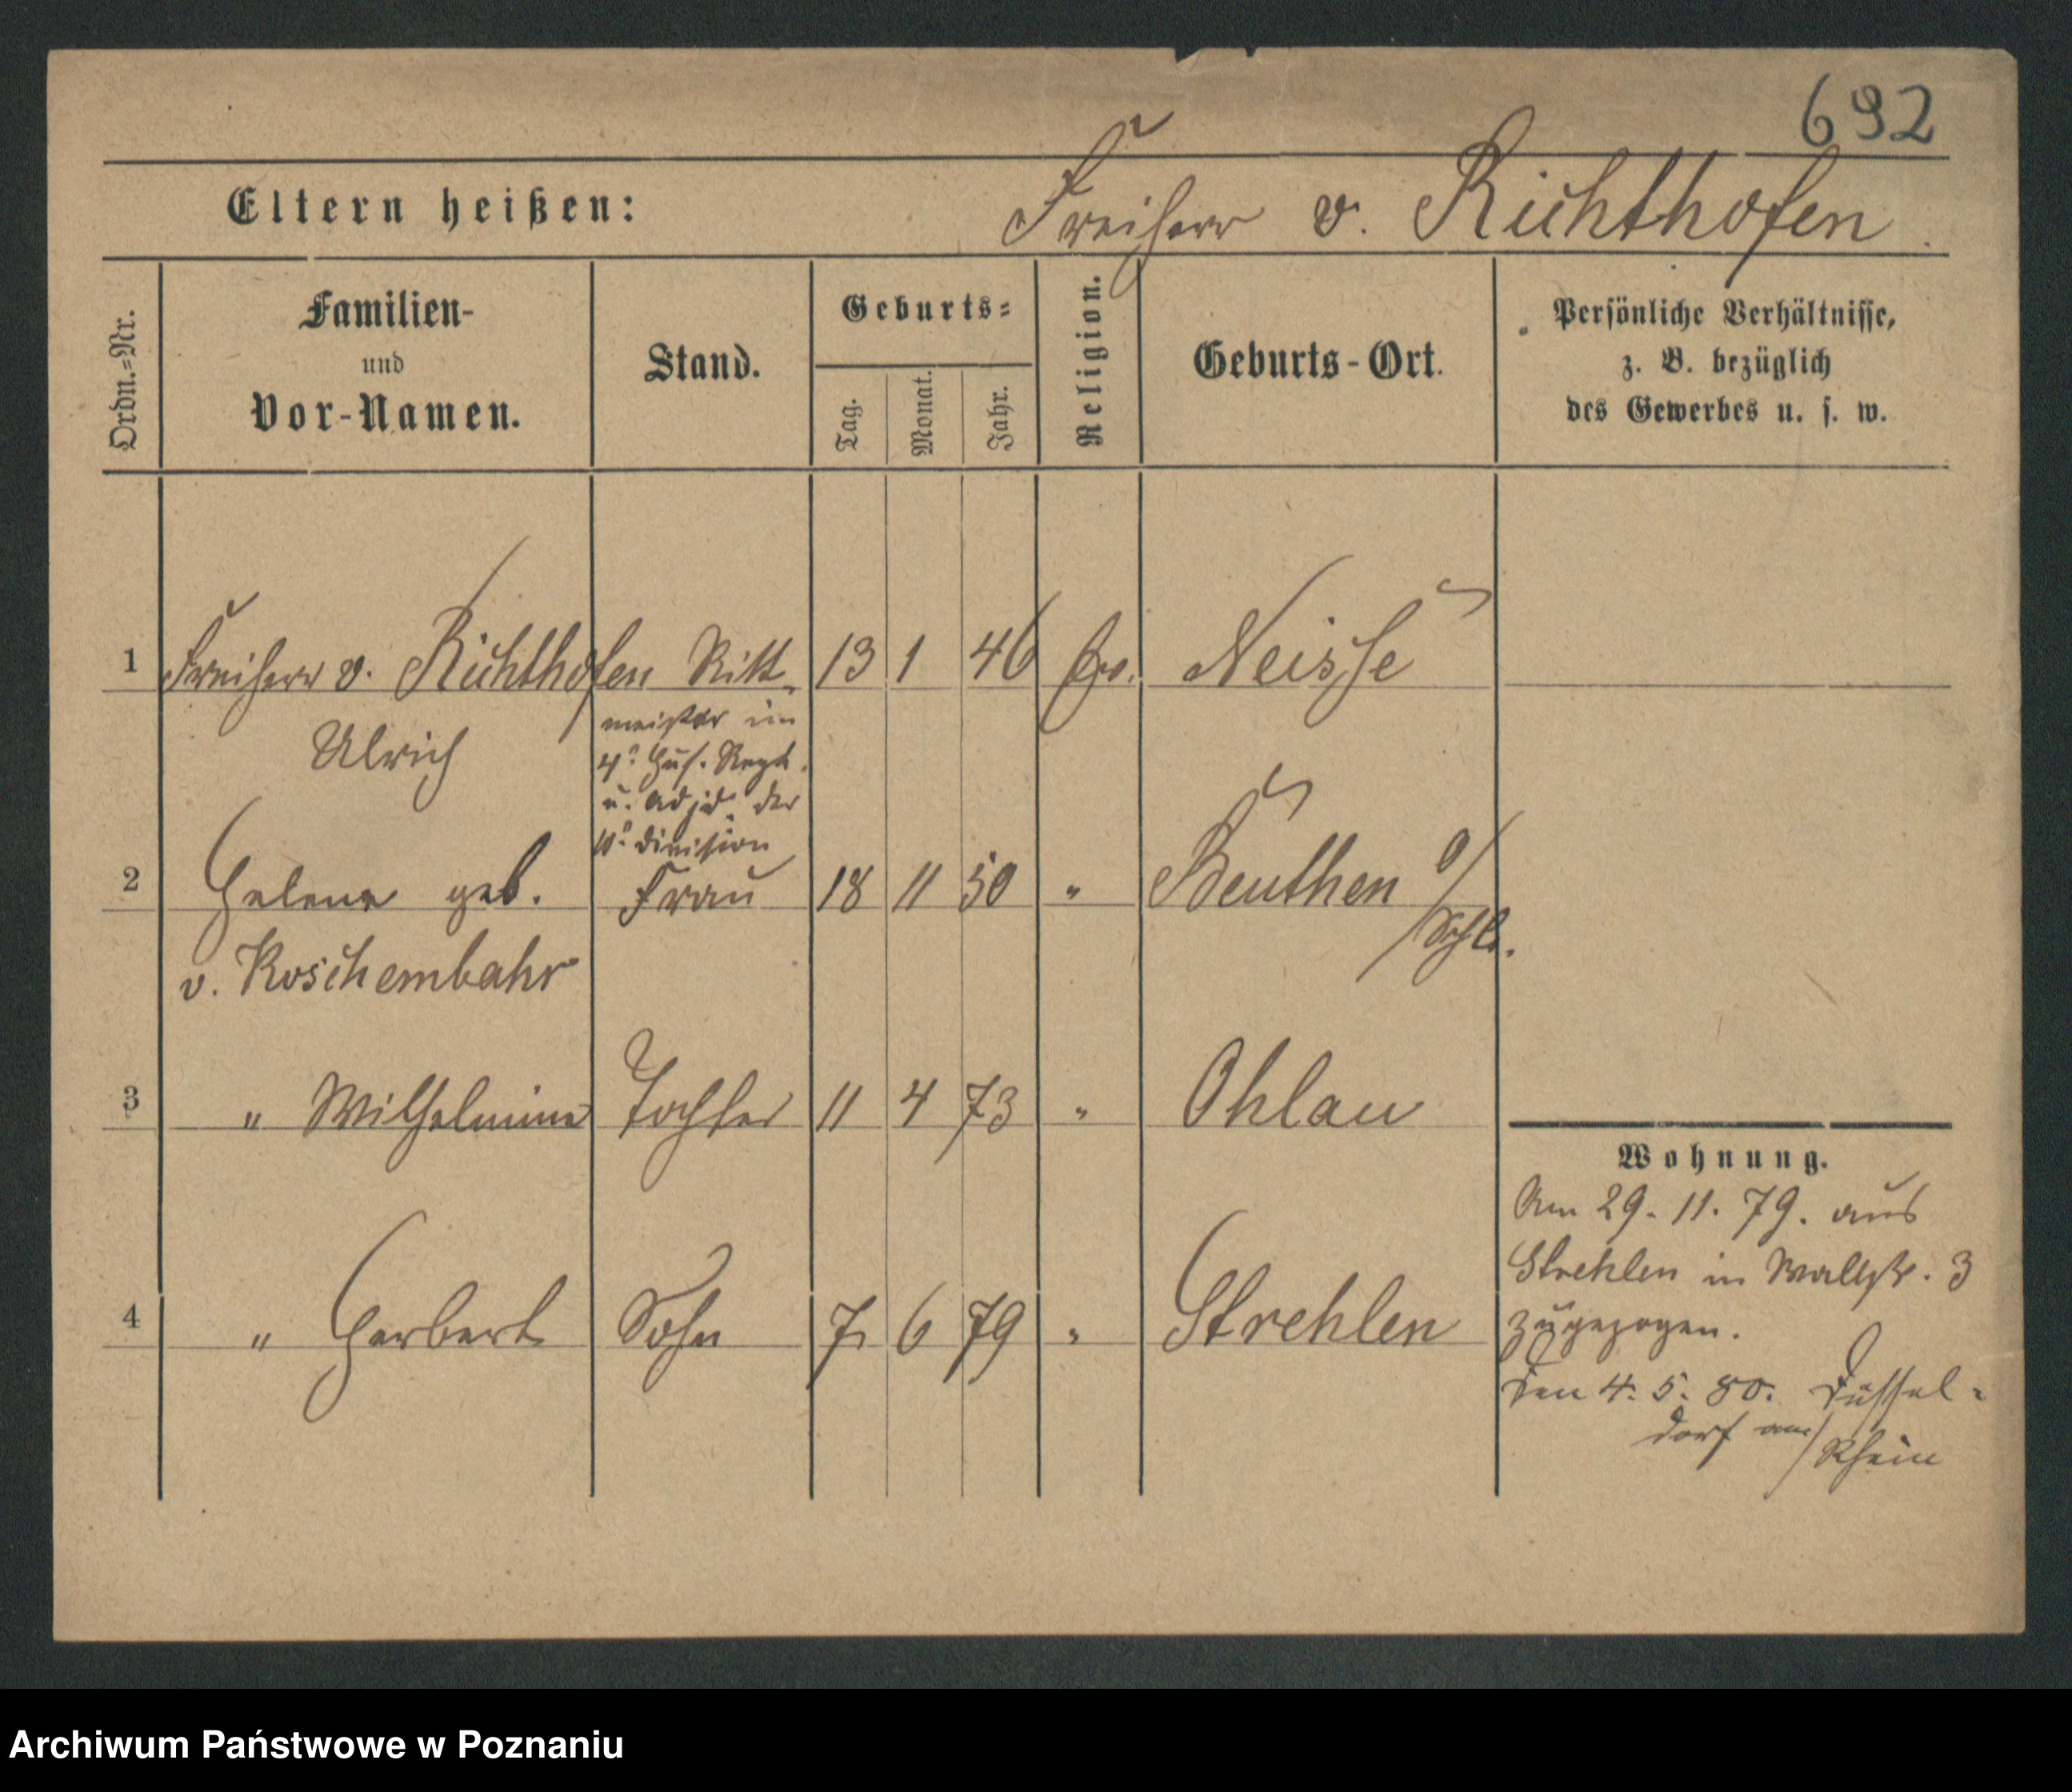 692
Eltern heißen: Freiherr v. Richthofen.
Ordn.=Nr.
Familien-
und
Vor-Namen.
Stand.
Geburts=
Tag.
Monat.
Jahr.
Religion.
Geburts-Ort.
Persönliche Verhältnisse,
z. B. bezüglich
des Gewerbes u. s. w.
1 Freiherr v. Richthofen Ritt- 13 1 46 Ev. Neisse
Ulrich
meister im
4t Hus. Regt.
u. Adjd. der
10t Division
2 Helene geb. Frau 18 11 50 " Beuthen O/
Schl.
v. Koschembahr
3 " Wilhelmine Tochter 11 4 73 " Ohlau
4 " Herbert Sohn 7. 6 79 " Strehlen
Wohnung.
Am 29. 11. 79. aus
Strehlen in Wallstr. 3
zugezogen.
Den 4. 5. 80. Düssel=
dorf am/
Rhein
Archiwum Państwowe w Poznaniu